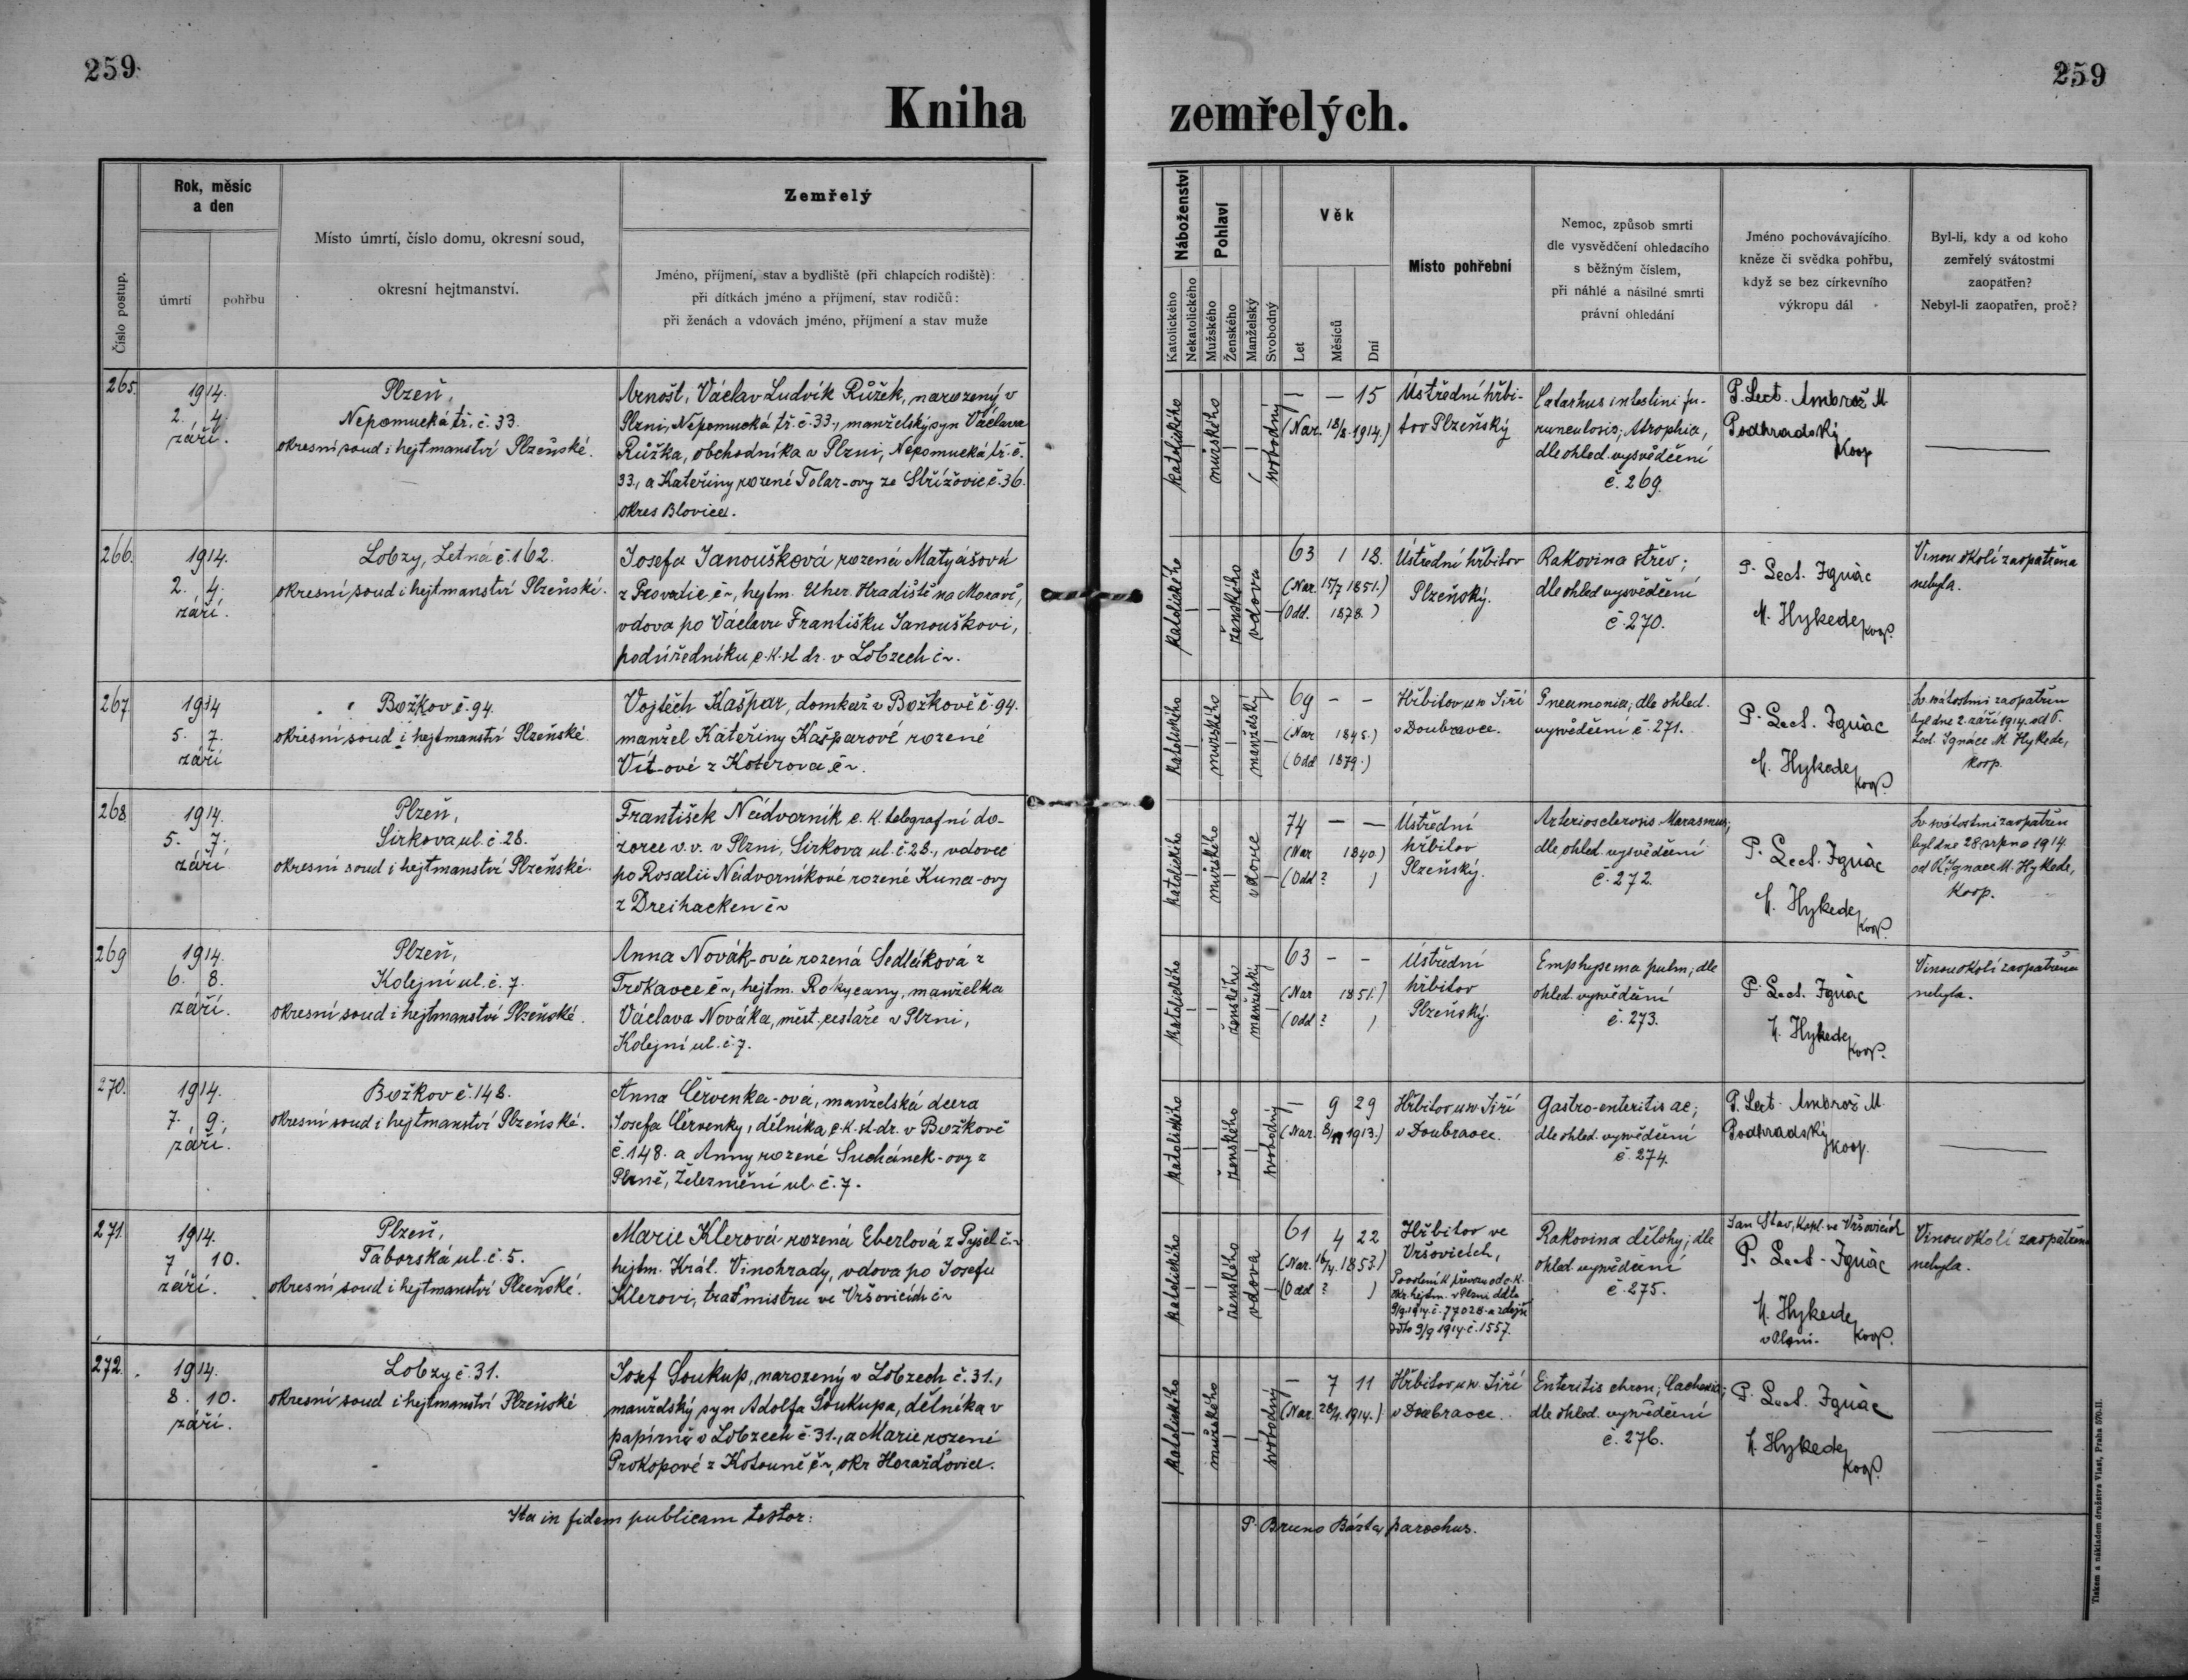 259
259
Kniha zemřelých.
Číslo postup.
Rok, měsíc
a den
úmrtí
pohřbu
Místo úmrtí, číslo domu, okresní soud,
okresní hejtmanství.
Zemřelý
Jméno, příjmení, stav a bydliště (při chlapcích rodiště):
při dítkách jméno a příjmení, stav rodičů:
při ženách a vdovách jméno, příjmení a stav muže
Náboženství
Katolického
Nekatolického
Pohlaví
Mužského
Ženského
Manželský
Svobodný
Věk
Let
Měsíců
Dní
Místo pohřební
Nemoc, způsob smrti
dle vysvědčení ohledacího
s běžným číslem,
při náhlé a násilné smrti
právní ohledání
Jméno pochovávajícího
kněze či svědka pohřbu,
když se bez církevního
výkropu dál
Byl-li, kdy a od koho
zemřelý svátostmi
zaopatřen?
Nebyl-li zaopatřen, proč?
265.
1914.
2. 4.
září.
Plzeň,
Nepomucká tř. č. 33.
okresní soud i hejtmanství Plzeňské.
Arnošt, Václav Ludvík Růžek, narozený v
Plzni, Nepomucká tř. č. 33., manželský syn Václava
Růžka, obchodníka v Plzni, Nepomucká tř. č.
33., a Kateřiny rozené Tolar-ovy ze Střížovic č. 36.
okres Blovice.
katolického
mužského
svobodný
— — 15
(Nar. 18/8 1914.)
Ústřední hřbi-
tov Plzeňský
Catarhus intestini fu-
runculosis, Atrophia,
dle ohled. vysvědčení
č. 269.
P. Lect. Ambrož M.
Podhradský
koop
266.
1914.
2. 4.
září.
Lobzy, Letná č. 162.
okresní soud i hejtmanství Plzeňské.
Josefa Janoušková rozená Matyášová
hejtm. Uher. Hradiště na Moravě,
vdova po Václavu Františku Janouškovi,
podúředníku c. k. st. dr. v Lobzech č ~.
katolického
ženského
vdova
63 1 18.
(Nar. 15/7 1851.)
(Odd. 1878.)
Ústřední hřbitov
Plzeňský.
Rakovina střev;
dle ohled. vysvědčení
č. 270.
P. Lect. Ignác
M. Hykede,
koop.
Vinou okolí zaopatřena
nebyla.
267.
1914
5. 7.
září
Božkov č. 94.
okresní soud i hejtmanství Plzeňské.
Vojtěch Kašpar, domkař v Božkově č. 94.
manžel Kateřiny Kašparové rozené
Vít-ové z Koterova č ~.
katolického
mužského
manželský
69 — —
(Nar 1845.)
(Odd 1879.)
Hřbitov u sv. Jiří
v Doubravce.
Pneumonia, dle ohled.
vysvědčení č. 271.
P. Lect. Ignác
M. Hykede,
koop.
Sv. svátostmi zaopatřen
byl dne 2. září 1914. od P.
Lect. Ignáce M. Hykede,
koop.
268.
1914.
5. 7.
září
Plzeň,
Sirkova ul. č. 28.
okresní soud i hejtmanství Plzeňské.
František Nádvorník c. k. telegrafní do-
zorce v. v. v Plzni, Sirkova ul. č. 28., vdovec
po Rosalii Nádvorníkové rozené Kuna-ovy
z Dreihacken č ~
katolického
mužského
vdovec
74 — —
(Nar 1840)
(Odd ? )
Ústřední
hřbitov
Plzeňský.
Arteriosclerosis. Marasmus;
dle ohled. vysvědčení
č. 272.
P. Lect. Ignác
M. Hykede,
koop.
Sv. svátostmi zaopatřen
byl dne 28. srpna 1914
od P. Ignace M. Hykede,
koop.
269
1914.
6. 8.
září.
Plzeň,
Kolejní ul. č. 7.
okresní soud i hejtmanství Plzeňské.
Anna Novák-ová rozená Sedláková z
Trokavce č ~, hejtm. Rokycany, manželka
Václava Nováka, měst. cestáře v Plzni,
Kolejní ul. č. 7.
katolického
ženského
manželský
63 — —
(Nar 1851.)
(Odd ? )
Ústřední
hřbitov
Plzeňský.
Emphysema pulm; dle
ohled. vysvědčení
č. 273.
P. Lect. Ignác
M. Hykede,
koop.
Vinou okolí zaopatřena
nebyla.
270.
1914.
7. 9.
září.
Božkov č. 148.
okresní soud i hejtmanství Plzeňské.
Anna Červenka-ová, manželská dcera
Josefa Červenky, dělníka c. k. st. dr. v Božkově
č. 148. a Anny rozené Suchánek-ovy z
Plzně, Železniční ul. č. 7.
katolického
ženského
svobodný
— 9 29
(Nar. 8/11 1913.)
Hřbitov u sv. Jiří
v Doubravce.
Gastro-enteritis ac;
dle ohled. vysvědčení
č. 274.
P. Lect. Ambrož M.
Podhradský
koop.
271.
1914.
7 10.
září.
Plzeň,
Táborská ul. č. 5.
okresní soud i hejtmanství Plzeňské.
Marie Klerová rozená Eberlová z Pyšel č. ~
hejtm. Král. Vinohrady, vdova po Josefu
Klerovi, traťmistru ve Vršovicích č ~
katolického
ženského
vdova
61 4 22
(Nar. 16/4 1853)
(Odd ? )
Hřbitov ve
Vršovicích,
Povolení k převozu od c. k.
okr. hejtm. v Plzni ddto
9/9. 1914. č. 77028. a zdejší
ddto 9/9 1914. č. 1557.
Rakovina dělohy; dle
ohled. vysvědčení
č. 275.
Jan Stav, kapl. ve Vršovicích
P. Lect. Ignác
M. Hykede,
v Plzni. koop.
Vinou okolí zaopatřena
nebyla.
272.
1914.
8. 10.
září.
Lobzy č. 31.
okresní soud i hejtmanství Plzeňské
Josef Soukup, narozený v Lobzech č. 31.,
manželský syn Adolfa Soukupa, dělníka v
papírně v Lobzech č. 31., a Marie rozené
Prokopové z Kotouně č ~, okr. Horažďovice.
katolického
mužského
svobodný
— 7 11
(Nar. 28/1. 1914.)
Hřbitov u sv. Jiří
v Doubravce.
Enteritis chron; Cachexia;
dle ohled. vysvědčení
č. 276.
P. Lect. Ignác
M. Hykede,
koop.
Ita in fidem publicam testor:
P. Bruno Bárta, parochus.
Tiskem a nákladem družstva Vlast, Praha 570-II.